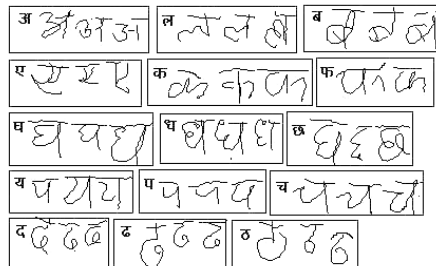 अ अ अ अ ल ल ल ल ब ब ब ब
ए ए ए ए क क क क फ फ फ फ
घ घ घ घ ध ध ध ध छ छ छ छ
य य य य प प प प च च च च
द द द द ढ ढ ढ ढ ठ ठ ठ ठ